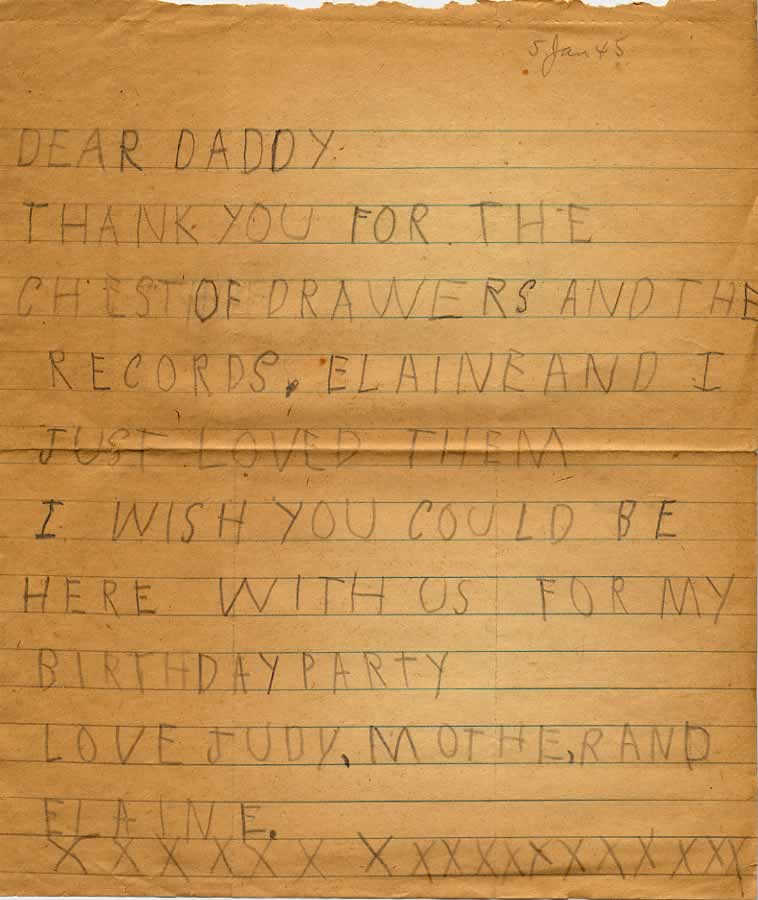 5 Jan 45
DEAR DADDY
THANK YOU FOR THE
CHEST OF DRAWERS AND THE
RECORDS, ELAINE AND I
JUST LOVED THEM
I WISH YOU COULD BE
HERE WITH US FOR MY
BIRTHDAY PARTY
LOVE JUDY, MOTHE,R AND
ELAINE.
X X X X X X X X X X X X X X X X X X X